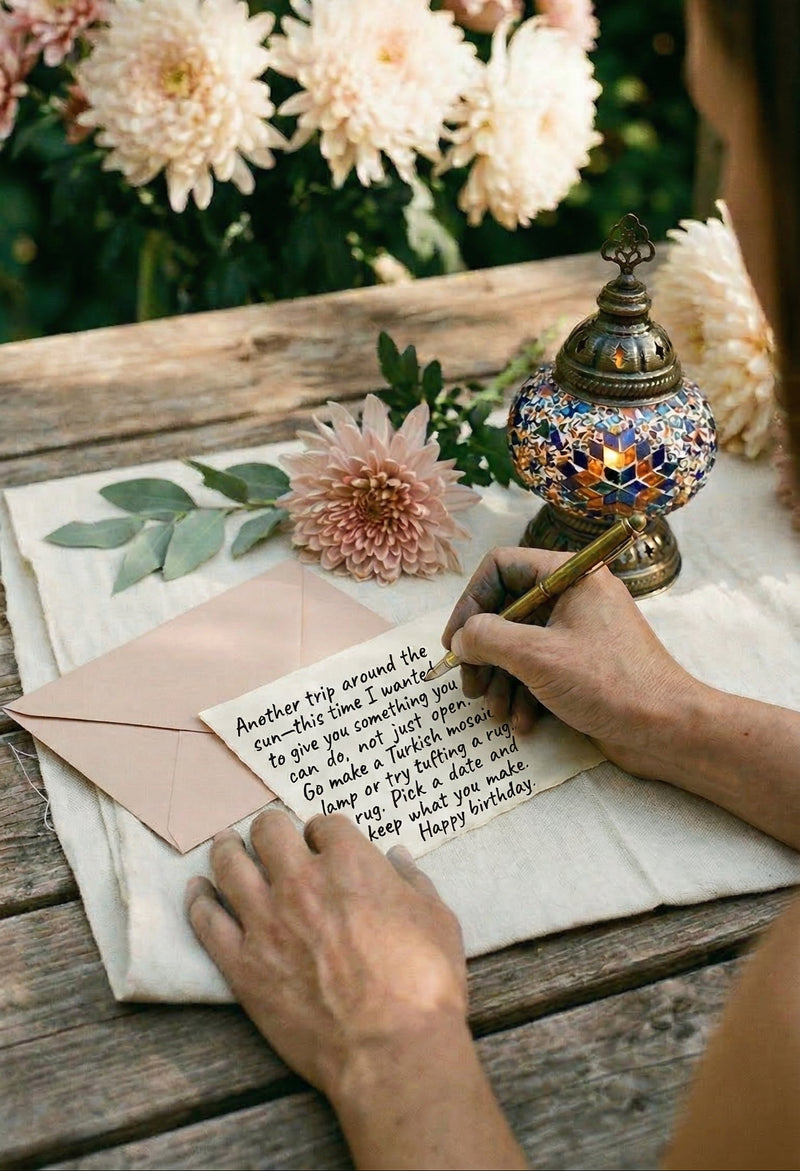 Another trip around the
sun—this time I wanted
to give you something you
can do, not just open.
Go make a Turkish mosaic
lamp or try tufting a rug.
rug. Pick a date and
keep what you make.
Happy birthday.